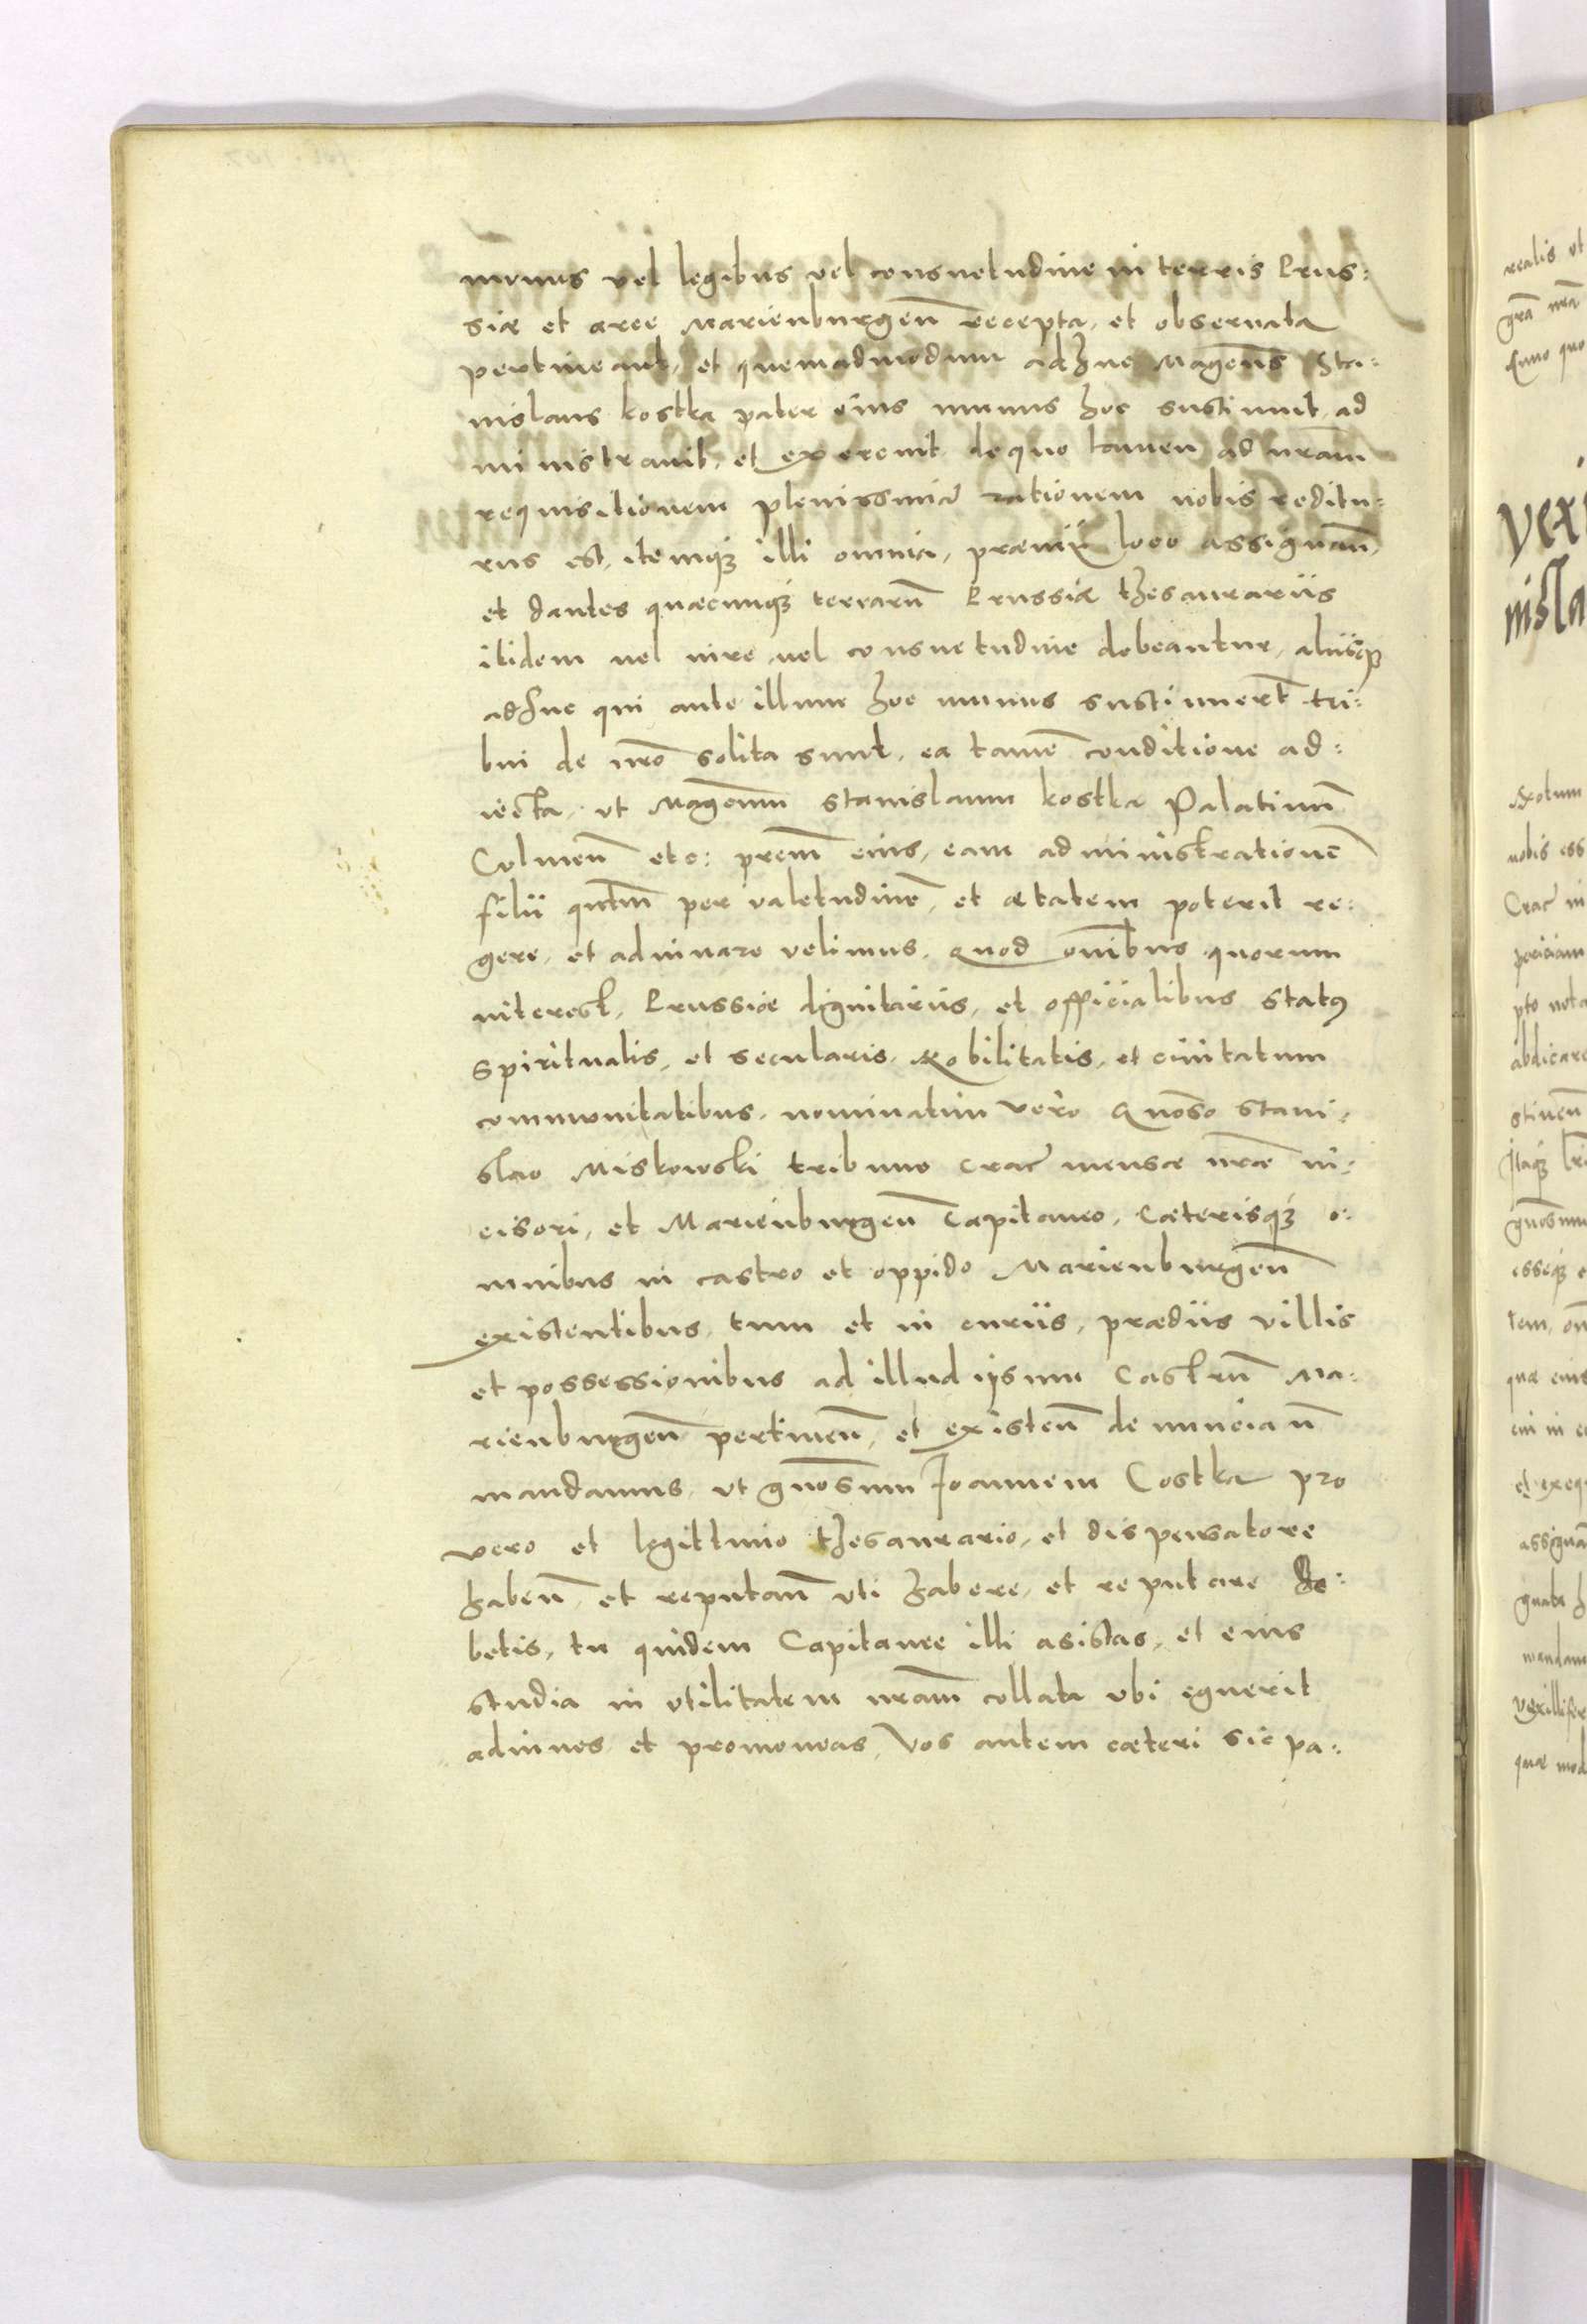 munus vel legibus vel consuetudine in terris Prus:
siae et arce Marienburgeñ recepta, et obseruata
pertineant, et quemadmodum adhuc Magcus Sta:
nislaus kostka pater eius munus hoc sustinuit, ad
ministrauit, et exercuit de quo tamen ad nram̃
requisitionem plenissimã rationem nobis reditu:
rus est, itemq3 illi omnia, praemij loco assignañ,
et dantes quaecunq3 terrarũ Prussiae thesaurarijs
itidem uel iure, uel consuetudine debeantur, alijsq3
adhuc qui ante illum hoc munus sustinuert̃ tri:
bui de nrõ solita sunt, ea tamẽ conditione ad:
iecta, ut Magcum Stanislaum kostka Palatinũ
Colmeñ etc: prem̃ eius, eam administrationẽ
filij qntm̃ per valetudinẽ, et aetatem poterit re:
gere, et adiuuare velimus. Quod oñibus quorum
interest, Prussiae dignitarijs, et officialibus status
spiritualis, et secularis, Nobilitatis, et ciuitatum
communitatibus, nominatim vero Gnõso Stani:
slao Miskowski tribuno Crac̃ mensae nrae in:
cisori, et Marienburgeñ Capitaneo, Caeterisq3 o:
mnibus in castro et oppido Marienburgeñ
existentibus, tum et in curijs, praedijs villis
et possessionibus ad illud ipsum Castrũ Ma:
rienburgeñ pertineñ, et existeñ denunciañ
mandamus, ut gnõsum Joannem Costka pro
vero et legittimo thesaurario, et dispensatore
habeñ, et reputañ uti habere, et reputare de:
betis, tu quidem Capitanee illi asistas, et eius
studia in utilitatem nram̃ collata ubi eguerit
adiuues et promoueas, Vos autem caeteri sic pa: